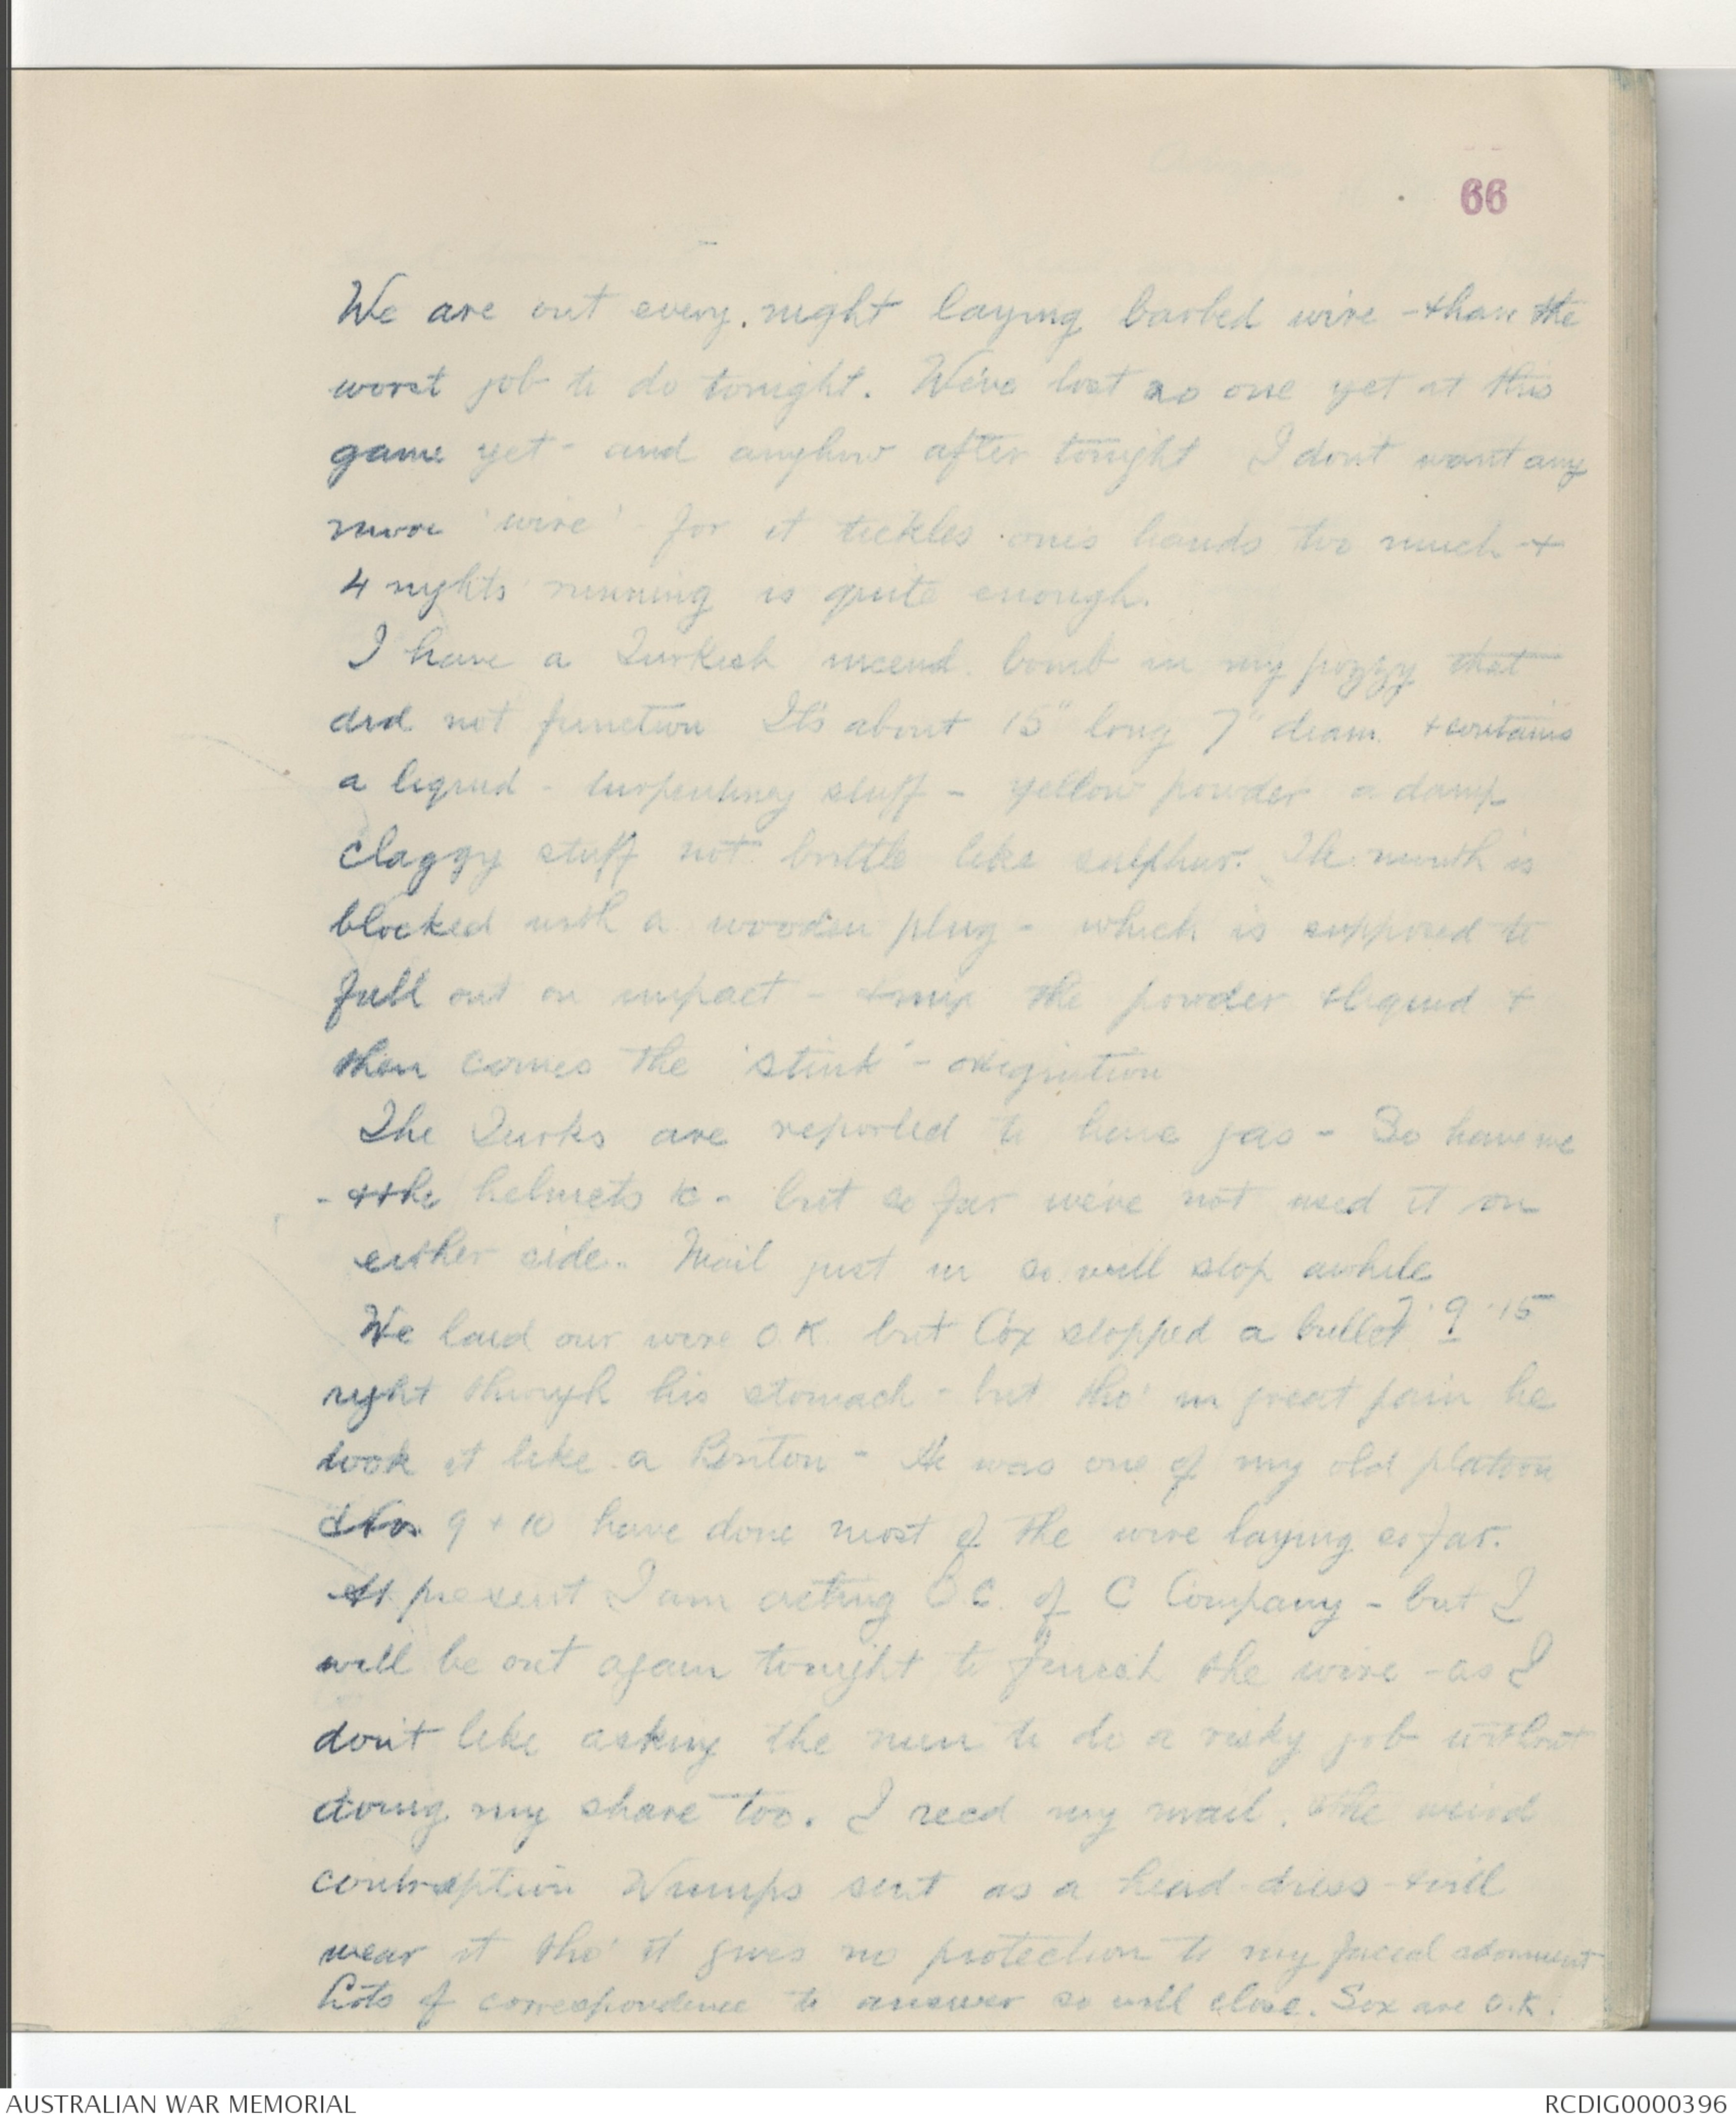 66
We are out every night laying barbed wire - & have the
worst job to do tonight. We've lost no one yet at this
game yet - and anyhow after tonight I don't want any
more 'wire' - for it tickles one's hands too much &
4 nights running is quite enough.
I have a Turkish incend. bomb in my pozzy that
did not function It's about 15" long 7" diam. & contains
a liquid - turpentiney stuff - yellow powder a damp
claggy stuff not brittle like sulphur. The mouth is
blocked with a wooden plug - which is supposed to
fall out on impact - & mix the powder & liquid &
then comes the 'stink' - or ignition
The Turks are reported to have gas - So have we
- & the helmets &c - but so far we've not used it on
either side. Mail just in so will stop awhile
7.9.15
We laid our wire O.K. but Cox stopped a bullet
right through his stomach - but tho' in great pain he
took it like a Briton - He was one of my old platoon
& Nos 9 & 10 have done most of the wire laying so far.
At present I am acting O.C. of C Company - but I
will be out again tonight to finish the wire - as I
don't like asking the men to do a risky job without
doing my share too. I recd my mail. & the weird
contraption Wumps sent as a head-dress & will
wear it tho' it gives no protection to my facial adornment
Lots of correspondence to answer so will close. Sox are O.K.
AUSTRALIAN WAR MEMORIAL
RCDIG0000396